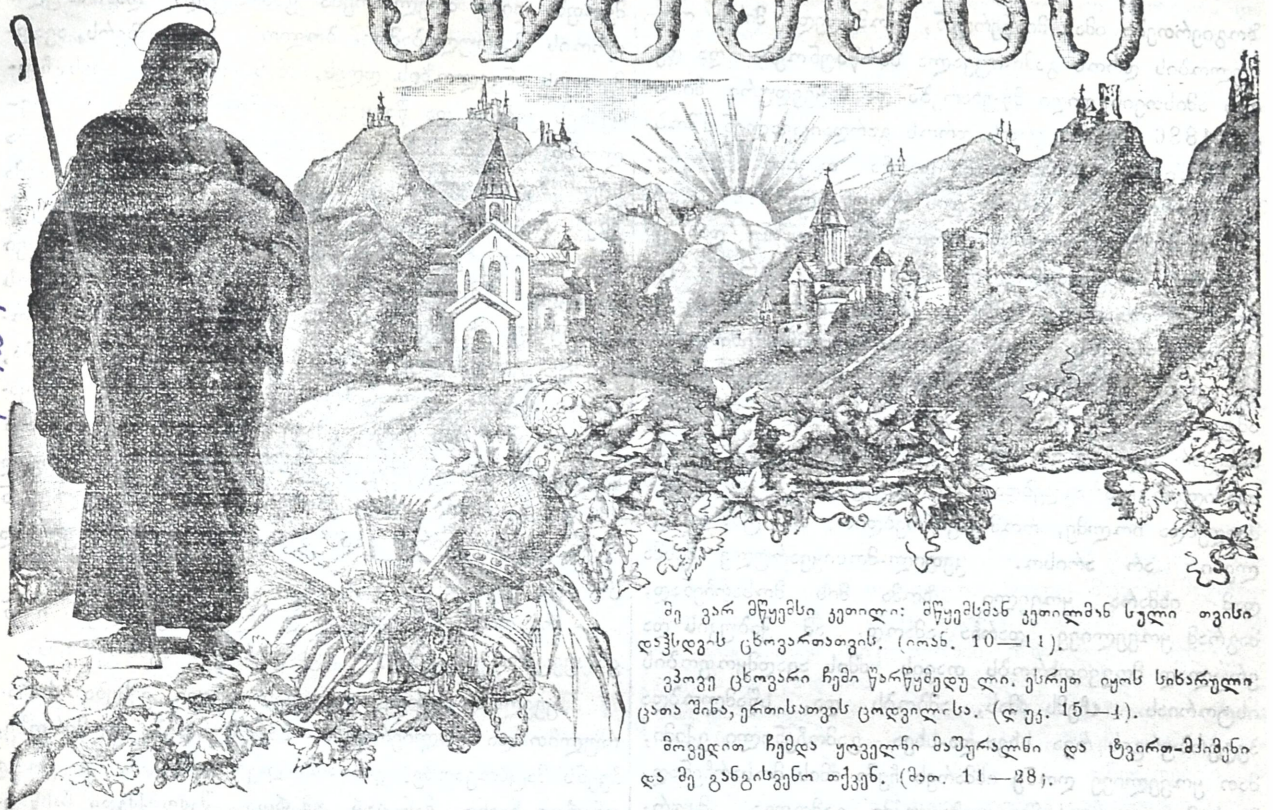 მე ვარ მწყემსი კეთილი: მწყემსმან კეთილმან სული თვისი
დაჰსდვის ცხოვართათვის. (იოან. 10—11).
ვპოვე ცხოვარი ჩემი წარწყმედუ ლი. ესრეთ იყოს სიხარული
ცათა შინა, ერთისათვის ცოდვილისა. (ლუკ. 15—4).
მოვედით ჩემდა ყოველნი მაშურალნი და ტვირთ-მძიმენი
და მე განგისვენო თქვენ. (მათ. 11—28).